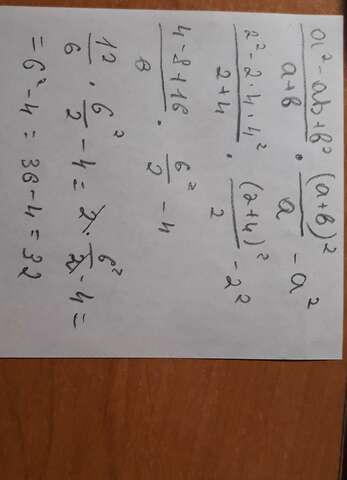 (a² - ab + b²)/(a + b) · (a + b)²/a - a²
(2² - 2 · 4 · 4²)/(2 + 4) · (2 + 4)²/2 - 2²
(4 - 8 + 16)/6 · 6²/2 - 4
12/6 · 6²/2 - 4 = 2 · 6²/2 - 4 =
= 6² - 4 = 36 - 4 = 32